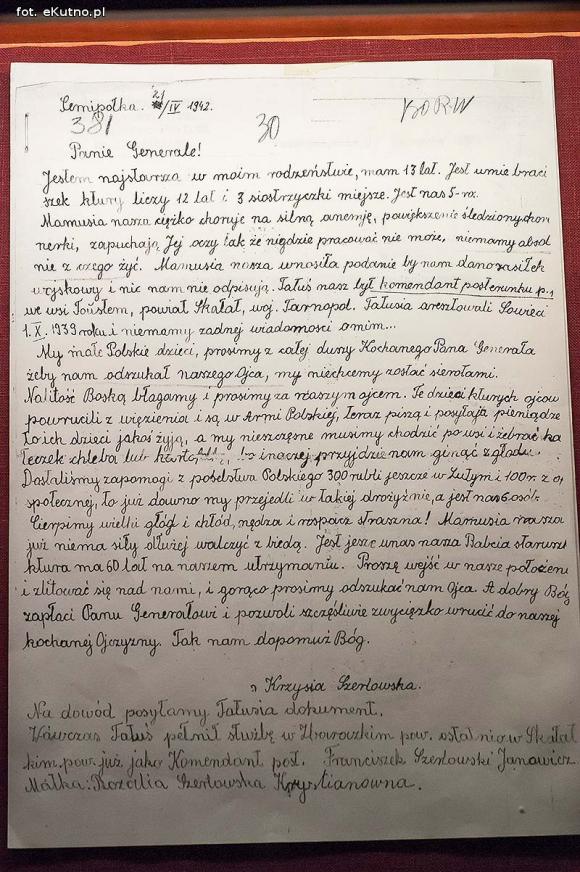 fot. eKutno.pl
Semipołka. 21/IV 1942.
381 30
Panie Generale!
Jestem najstarsza w moim rodzeństwie, mam 13 lat. Jest umie braci
szek ktury liczy 12 lat i 3 siostrzyczki miejsze. Jest nas 5-ro.
Mamusia nasza ciężko choruje na silną anemję, powiększenie śledziony chor
nerki, zapuchają Jej oczy tak że nigdzie pracować nie może, niemamy absol
nie z czego żyć. Mamusia nasza wnosiła podanie by nam dano zasiłek
wojskowy i nic nam nie odpisują. Tatuś nasz był komendant posterunku p.p.
we wsi Toustem, powiat Skałat, woj. Tarnopol. Tatusia aresztowali Sowieci
1. X. 1939 roku i niemamy żadnej wiadomości o nim...
My małe Polskie dzieci, prosimy z całej duszy Kochanego Pana Generała
żeby nam odszukał naszego Ojca, my niechcemy zostać sierotami.
Na litość Boską błagamy i prosimy za naszym ojcem. Te dzieci kturych ojcow
powrucili z więzienia i są w Armi Polskiej, teraz piszą i posyłają pieniądze
to ich dzieci jakoś żyją, a my nieszczęsne musimy chodzić po wsi i żebrać ka
łeczek chleba lub kartofla, bo inaczej przyjdzie nam ginąć z głodu.
Dostaliśmy zapomogi z poselstwa Polskiego 300 rubli jeszcze w Lutym i 100 r. z o.
społecznej, to już dawno my przejedli w takiej drożyźnie, a jest nas 6 osób.
Cierpimy wielki głód i chłód, nędza i rozpacz straszna! Mamusia nasza
już niema siły dłużej walczyć z biedą. Jest jeszcze unas nasza Babcia starusz
ktura ma 60 lat na naszem utrzymaniu. Proszę wejść w nasze położeni
i zlitować się nad nami, i gorąco prosimy odszukać nam Ojca. A dobry Bóg
zapłaci Panu Generałowi i pozwoli szczęśliwie zwycięzko wrucić do naszej
kochanej Ojczyzny. Tak nam dopomuż Bóg.
Krzysia Szerłowska.
Na dowód posyłamy Tatusia dokument.
Wówczas Tatuś pełnił służbę w Zboroczkim pow. ostatnio w Skałat
kim. pow. już jako Komendant post. Franciszek Szerłowski Janowicz.
Matka: Rozcilia Szerłowska Krystianowna.